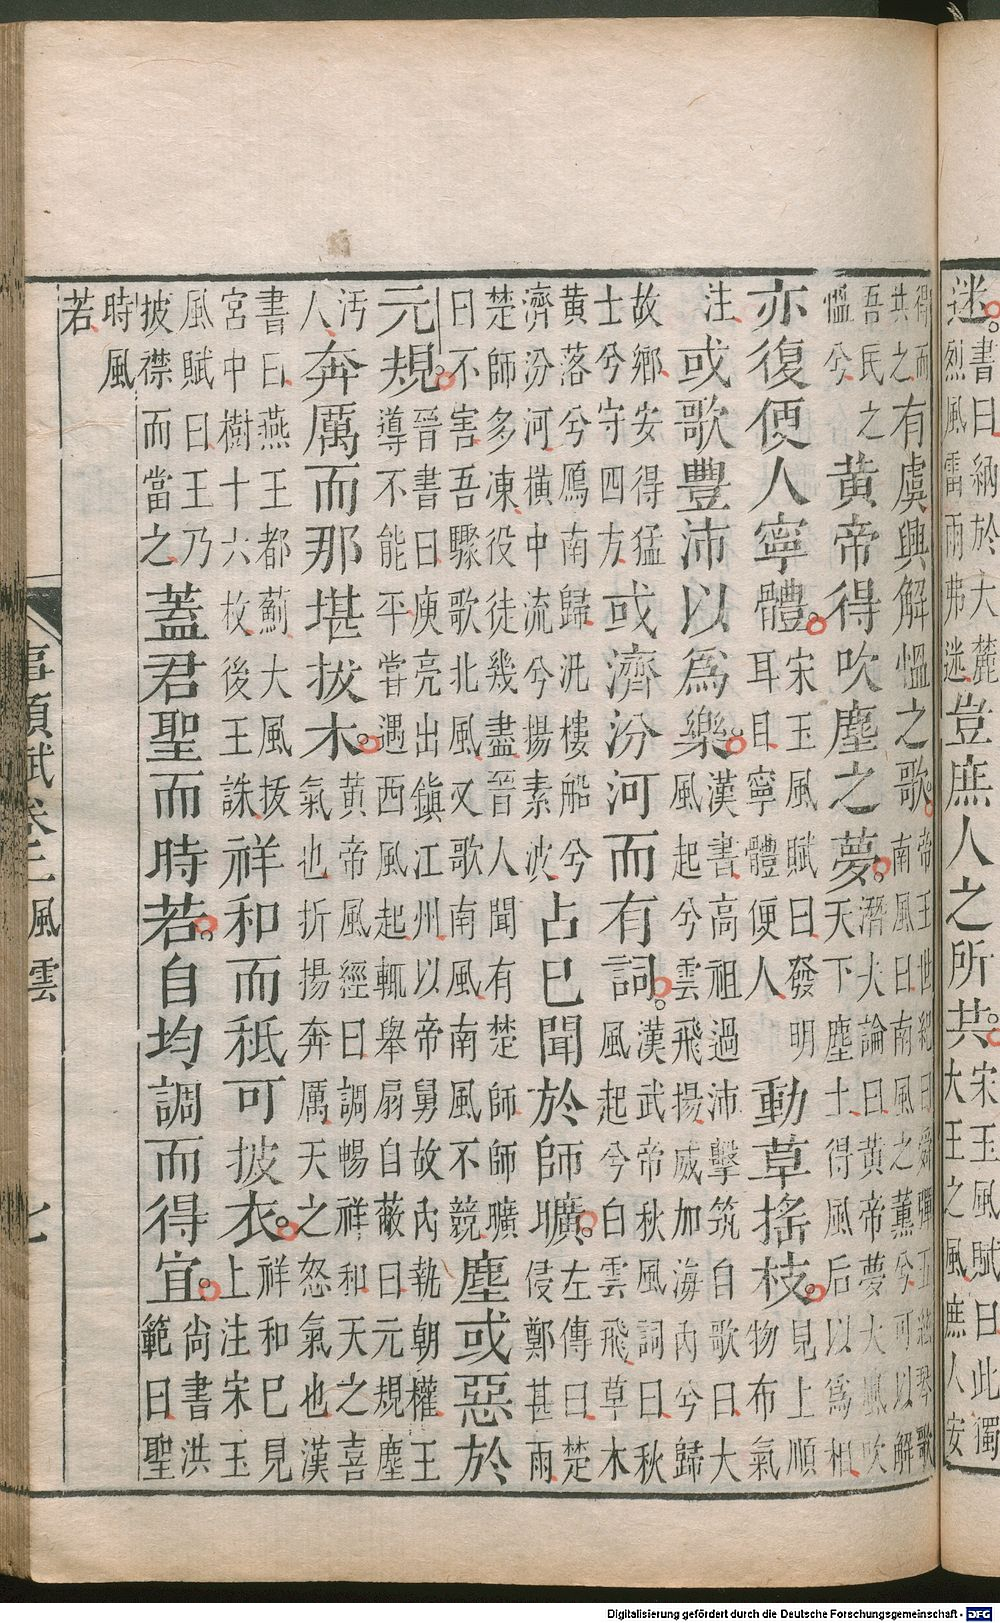 迷書曰納於大麓烈風雷雨弗迷豈庶人之所共宋玉風賦曰此獨大王之風庶人安
得而共之有虞興解慍之歌帝王世紀曰舜彈五絃琴歌南風曰南風之薰兮可以解
吾民之慍兮黃帝得吹塵之夢潛大論曰黃帝夢大風吹天下塵土得風后以爲相
亦復便人寧體宋玉風賦曰發明耳目寧體便人動草搖枝見上順物布氣
注或歌豐沛以爲樂漢書高祖過沛擊筑自歌曰大風起兮雲飛揚威加海內兮歸
故鄉安得猛士兮守四方或濟汾河而有詞漢武帝秋風詞曰秋風起兮白雲飛草木
黃落兮鴈南歸汎樓船兮濟汾河橫中流兮揚素波占已聞於師曠左傳曰楚侵鄭甚雨
楚師多凍役徒幾盡晉人聞有楚師師曠曰不害吾驟歌北風又歌南風南風不競塵或惡於
元規晉書曰庾亮出鎮江州以帝舅故內執朝權王導不能平嘗遇西風起輒舉扇自蔽曰元規塵
汚人奔厲而那堪拔木黃帝風經曰調暢祥和天之喜氣也折揚奔厲天之怒氣也漢
書曰燕王都薊大風拔宮中樹十六枚後王誅祥和而秪可披衣祥和已見上注宋玉
風賦曰王乃披襟而當之蓋君聖而時若自均調而得宜尚書洪範曰聖
時風若
事類賦卷三 風雲 七
Digitalisierung gefördert durch die Deutsche Forschungsgemeinschaft - DFG